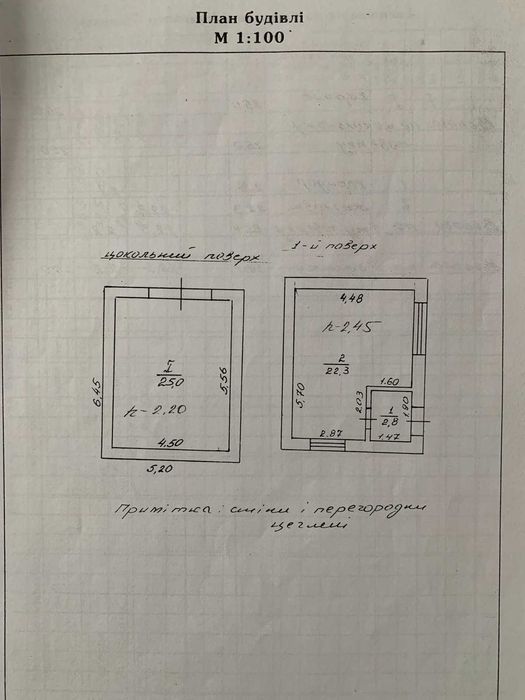 План будівлі
М 1:100
цокольний поверх
1-й поверх
I
25,0
h-2,20
6,45
5,56
4,50
5,20
4,48
h-2,45
2
22,3
5,70
1.60
2,03
1,90
1
2,8
2,87
1,47
Примітка: стіни і перегородки
цегляні